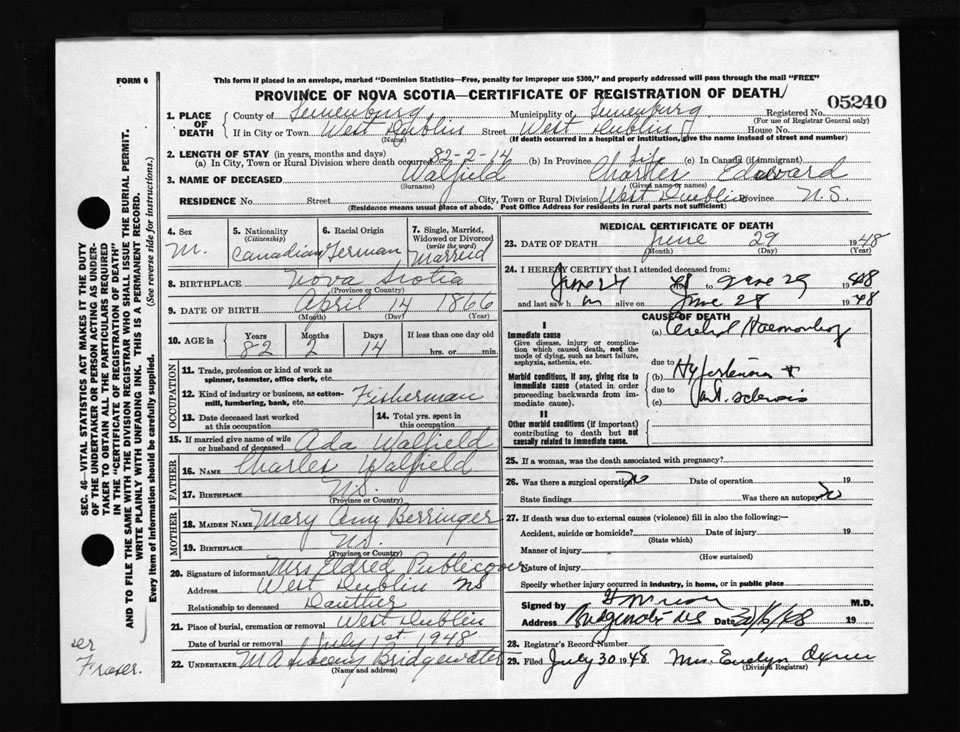 FORM 6
This form if placed in an envelope, marked "Dominion Statistics—Free, penalty for improper use $300," and properly addressed will pass through the mail "FREE"
PROVINCE OF NOVA SCOTIA—CERTIFICATE OF REGISTRATION OF DEATH
05240
1. PLACE OF DEATH
County of Lunenburg Municipality of Lunenburg Registered No.
(For use of Registrar General only)
If in City or Town West Dublin Street West Dublin House No.
(Name) (If death occurred in a hospital or institution, give the name instead of street and number)
2. LENGTH OF STAY (in years, months and days)
(a) In City, Town or Rural Division where death occurred 82-2-14 (b) In Province Life (c) In Canada (if immigrant)
3. NAME OF DECEASED Walfield Charles Edward
(Surname) (Given name or names)
RESIDENCE No. Street City, Town or Rural Division West Dublin Province N.S.
(Residence means usual place of abode. Post Office Address for residents in rural parts not sufficient)
4. Sex
M.
5. Nationality
(Citizenship)
Canadian
6. Racial Origin
German
7. Single, Married, Widowed or Divorced
(write the word)
Married
8. BIRTHPLACE Nova Scotia
(Province or Country)
9. DATE OF BIRTH April 14 1866
(Month) (Day) (Year)
10. AGE in Years Months Days If less than one day old
82 2 14 hrs. or min.
OCCUPATION
11. Trade, profession or kind of work as
spinner, teamster, office clerk, etc.
12. Kind of industry or business, as cotton-
mill, lumbering, bank, etc. Fisherman
13. Date deceased last worked
at this occupation
14. Total yrs. spent in
this occupation
15. If married give name of wife
or husband of deceased Ada Walfield
FATHER
16. NAME Charles Walfield
17. BIRTHPLACE N.S.
(Province or Country)
MOTHER
18. MAIDEN NAME Mary Ann Berringer
19. BIRTHPLACE N.S.
(Province or Country)
20. Signature of informant Mrs Eldred Publicover
Address West Dublin NS
Relationship to deceased Dauther
21. Place of burial, cremation or removal West Dublin
Date of burial or removal July 1st 1948
22. UNDERTAKER Bridgewater
(Name and address)
MEDICAL CERTIFICATE OF DEATH
23. DATE OF DEATH June 29 1948
(Month) (Day) (Year)
24. I HEREBY CERTIFY that I attended deceased from:
June 27 48 to June 29 1948
and last saw h m alive on June 28 1948
CAUSE OF DEATH
I
Immediate cause
Give disease, injury or complication which caused death, not the mode of dying, such as heart failure, asphyxia, asthenia, etc.
(a) Cerebral Haemorrhag
due to
Morbid conditions, if any, giving rise to immediate cause (stated in order proceeding backwards from immediate cause).
(b) Hypertension +
due to
(c) Art. sclerosis
II
Other morbid conditions (if important) contributing to death but not causally related to immediate cause.
25. If a woman, was the death associated with pregnancy?
26. Was there a surgical operation? No Date of operation 19
State findings Was there an autopsy? No
27. If death was due to external causes (violence) fill in also the following:—
Accident, suicide or homicide? Date of injury 19
(State which)
Manner of injury
(How sustained)
Nature of injury
Specify whether injury occurred in industry, in home, or in public place
Signed by M.D.
Address Bridgewater NS Date 30/6/48 19
28. Registrar's Record Number
29. Filed July 30 1948 Mrs. Evelyn Oxner
(Division Registrar)
SEC. 46—VITAL STATISTICS ACT MAKES IT THE DUTY
OF THE UNDERTAKER OR PERSON ACTING AS UNDER-
TAKER TO OBTAIN ALL THE PARTICULARS REQUIRED
IN THE "CERTIFICATE OF REGISTRATION OF DEATH"
AND TO FILE THE SAME WITH THE DIVISION REGISTRAR WHO SHALL ISSUE THE BURIAL PERMIT.
WRITE PLAINLY WITH UNFADING INK. THIS IS A PERMANENT RECORD.
Every item of information should be carefully supplied. (See reverse side for instructions.)
Fraser.